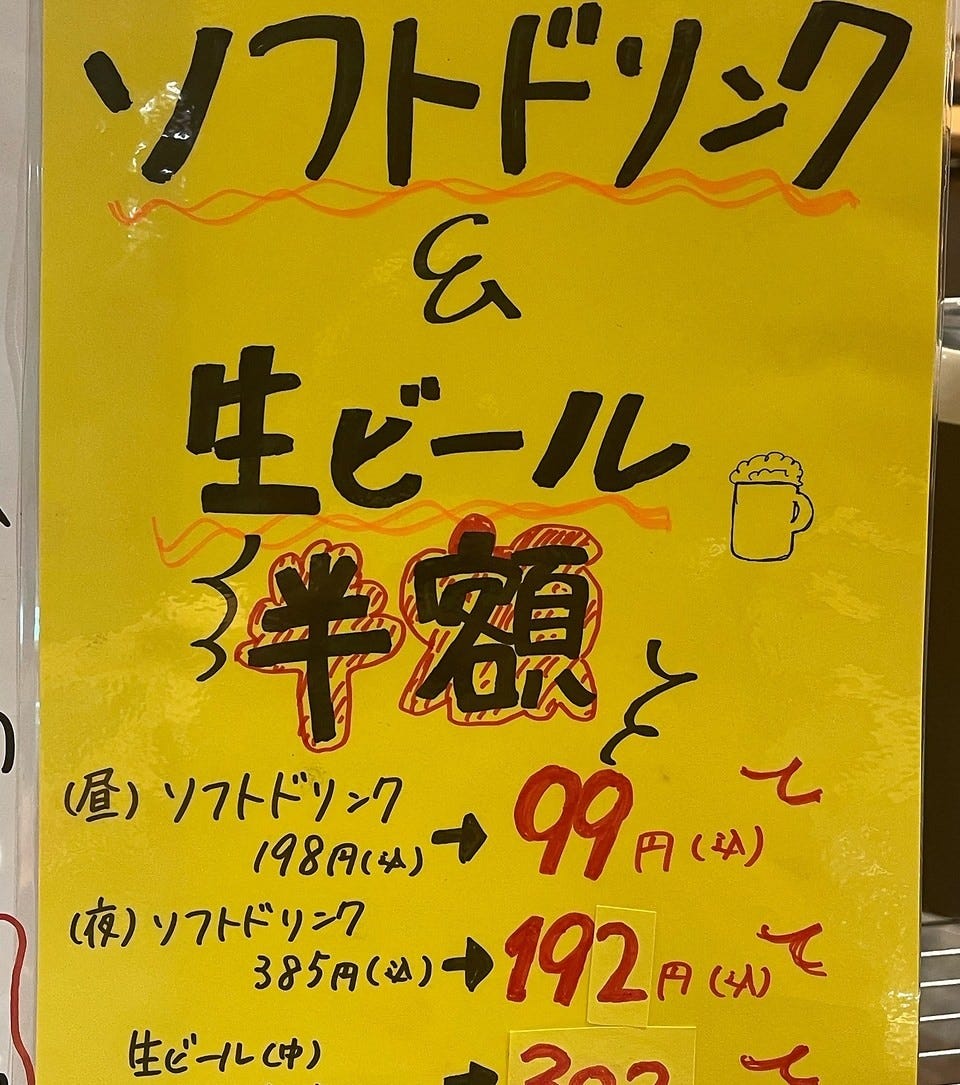 ソフトドリンク
&
生ビール
半額
(昼) ソフトドリンク
198円(込) → 99円(込)
(夜) ソフトドリンク
385円(込) → 192円(込)
生ビール(中)